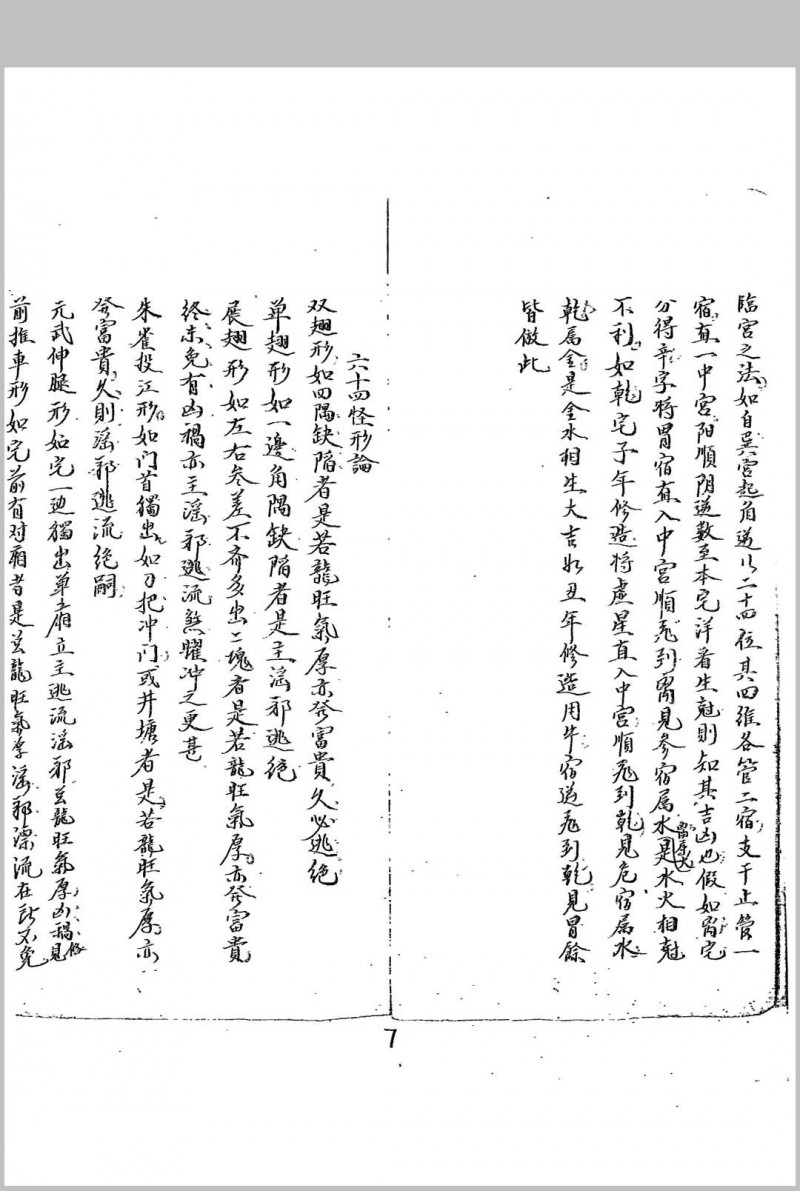 臨宮之法如自巽宮起角逆以二十四位其四維各管二宿支干止管一
宿直一中宮阳順阴逆数至本宅洋看生尅則知其吉凶也假如离宅
分得辛字將胃宿直入中宮順飛到离見參宿属水离属火是水火相尅
不利如乾宅子年修造將虛星直入中宮順飛到乾見危宿属水
乾属金是金水相生大吉如丑年修造用牛宿逆飛到乾見胃餘
皆倣此
六十四怪形論
双翅形如四隅缺陷者是若龍旺氣厚亦發富貴久必逃絶
单翅形如一邊角隅缺陷者是主滛邪逃絶
展翅形如左右參差不齐多出二塊者是若龍旺氣厚亦發富貴
終未免有凶禍亦主滛邪逃流煞曜冲之更甚
朱雀投江形如门首獨出如刀把冲门或井塘者是若龍旺氣厚亦
發富貴久則滛邪逃流絶嗣
元武伸腿形如宅一边獨出单厢立主逃流滛邪若龍旺氣厚凶禍見
前推車形如宅前有对厢者是若龍旺氣厚滛邪漂流在所不免
7